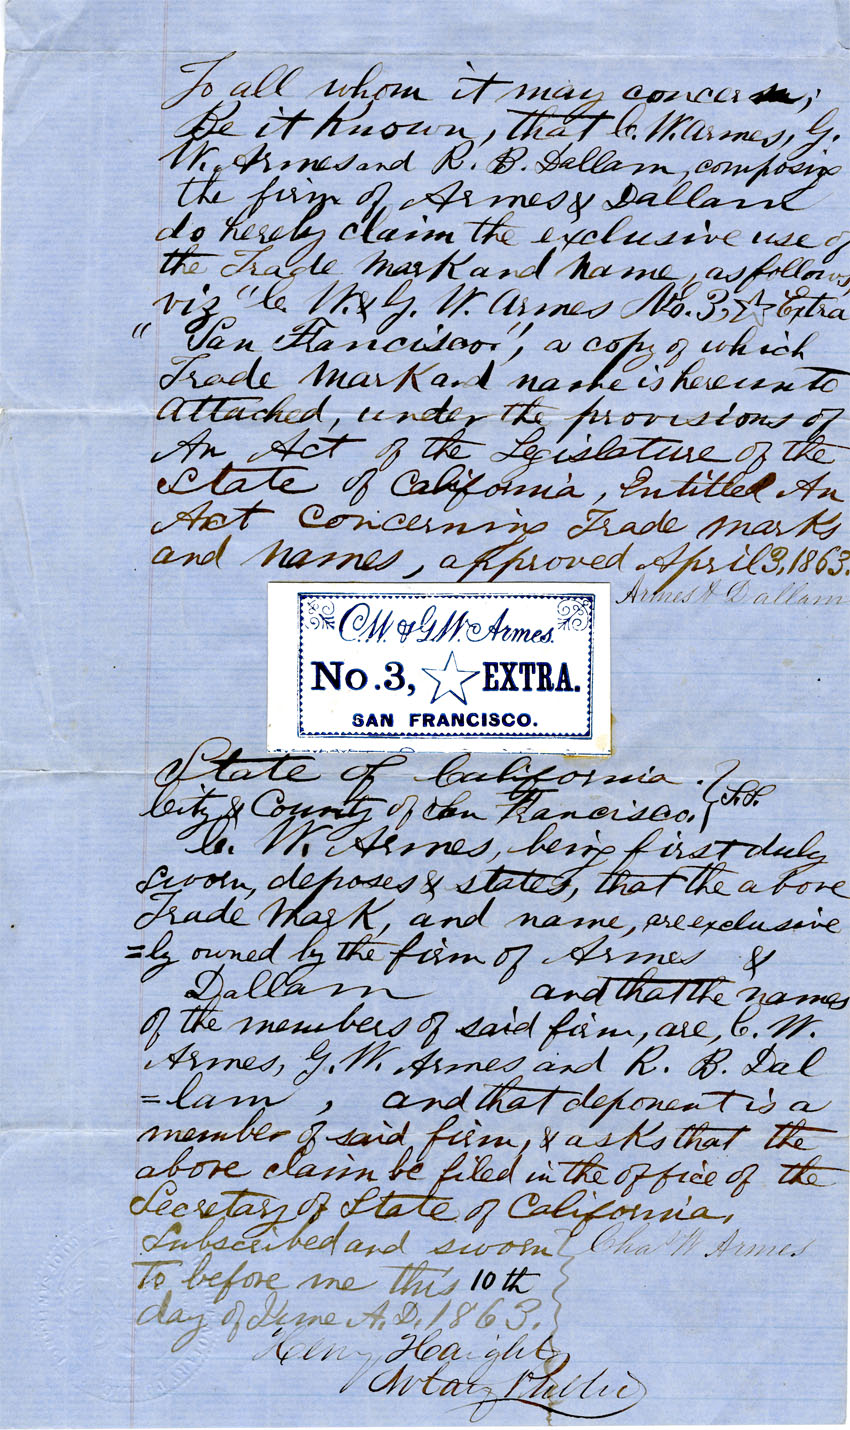 To all whom it may concern;
Be it Known, that C. W. Armes, G.
W. Armes and R. B. Dallam, composing
the firm of Armes & Dallam
do hereby claim the exclusive use of
the Trade Mark and Name, as follows,
viz "C. W. & G. W. Armes No. 3, ☆ Extra
" San Francisco", a copy of which
Trade Mark and name is hereunto
attached, under the provisions of
An Act of the Legislature of the
State of California, Entitled An
Act Concerning Trade marks
and names, approved April 3, 1863.
Armes & Dallam
C.W. & G.W. Armes.
No. 3, ☆ EXTRA.
SAN FRANCISCO.
State of California.
City & County of San Francisco. } S.S.
C. W. Armes, being first duly
sworn, deposes & states, that the above
Trade Mark, and name, are exclusive
=ly owned by the firm of Armes &
Dallam and that the names
of the members of said firm, are, C. W.
Armes, G. W. Armes and R. B. Dal
=lam, and that deponent is a
member of said firm, & asks that the
above claim be filed in the office of the
Secretary of State of California.
Subscribed and sworn } Chas W Armes
To before me this 10th
day of June A.D. 1863.
Henry Haight
Notary Public